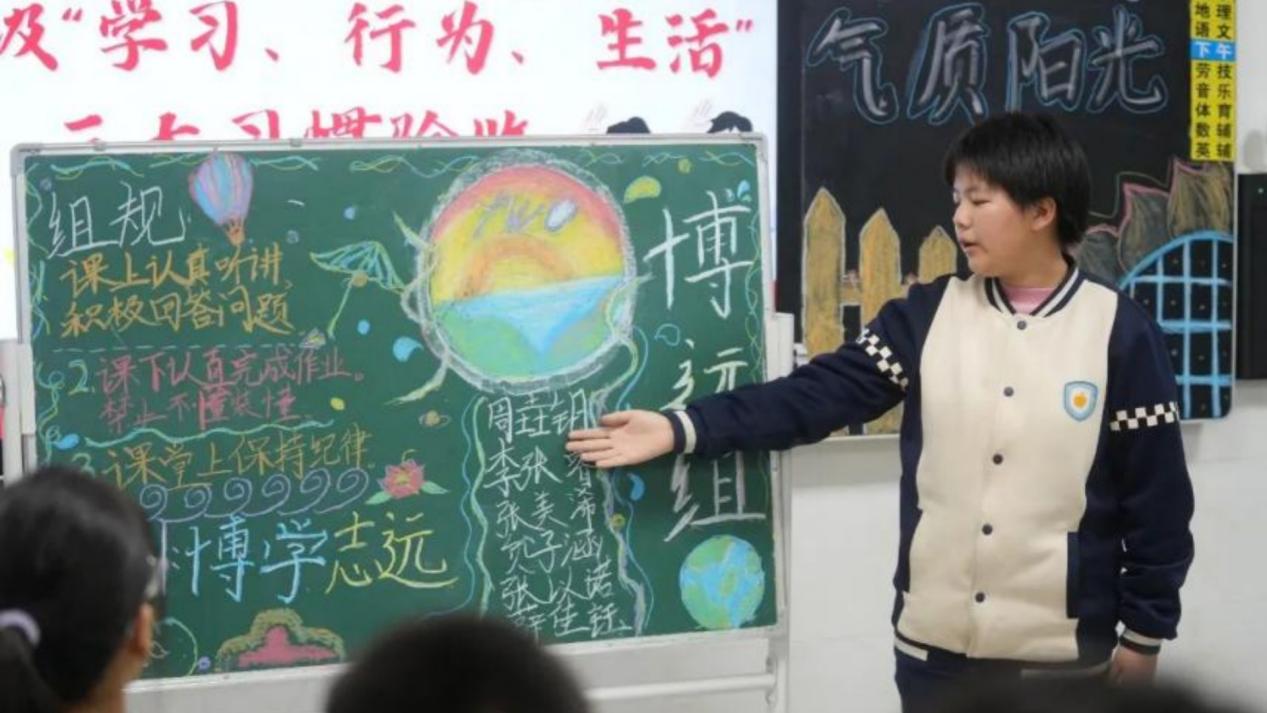 级“学习、行为、生活”
气质阳光
理
地文
语
下午
劳技
音乐
体育
数辅
英辅
组规
课上认真听讲
积极回答问题
2.课下认真完成作业。
禁止不懂装懂
3.课堂上保持纪律
博学志远
博远组
李张
张美浠
子涵
张以诺
薛佳钰